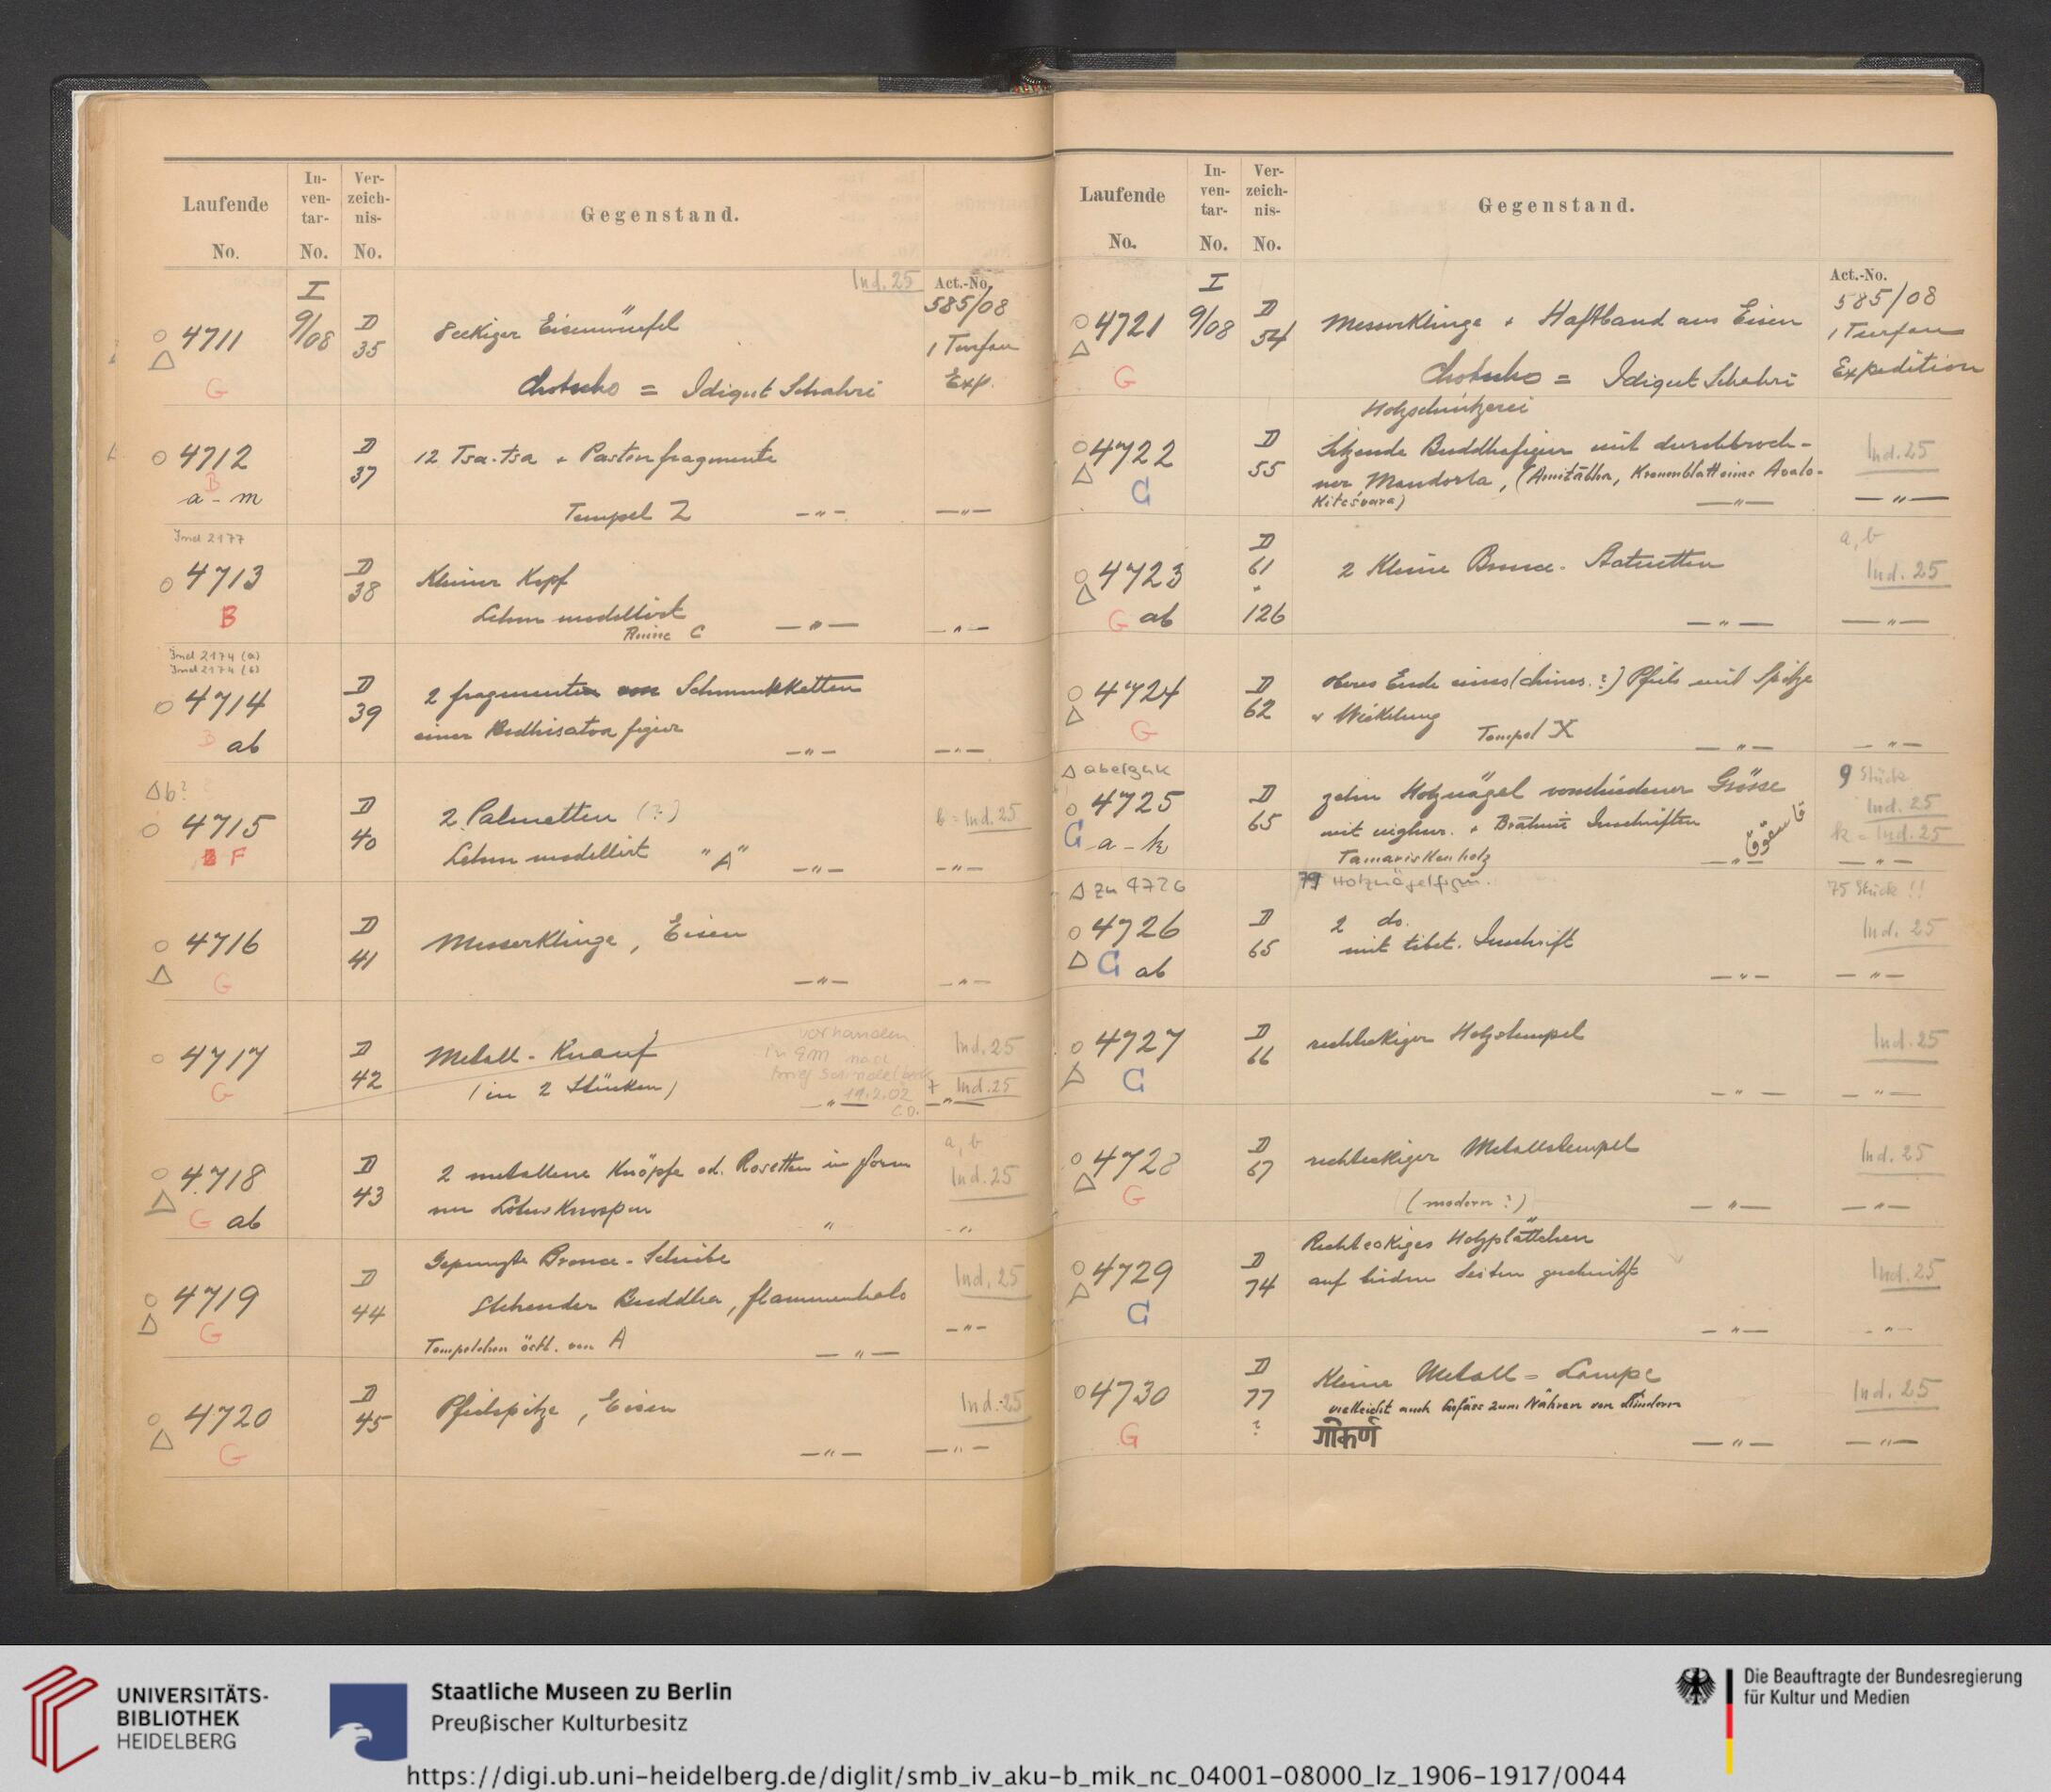 Laufende
No.
In-
ven-
tar-
No.
Ver-
zeich-
nis-
No.
Gegenstand.
Ind. 25
Act.-No.
4711
I
9/08
D
35
8eckiger Eisenwürfel
Chotscho = Idigut Schahri
585/08
1 Turfan
Exp.
G
4712
B
a - m
D
37
12 Tsa-tsa + Pastenfragmente
Tempel Z — " —
— " —
Ind 2177
4713
B
D
38
Kleiner Kopf
Lehm modelliert
Ruine C — " —
— " —
Ind 2174 (a)
Ind 2174 (b)
4714
B ab
D
39
2 fragmente von Schmuckketten
einer Bodhisatva figur
— " —
— " —
Δ b?
4715
B F
D
40
2 Palmetten (?)
Lehm modelliert "A" — " —
b = Ind. 25
— " —
4716
G
D
41
Messerklinge, Eisen
— " —
— " —
4717
G
D
42
Metall - Knauf
(in 2 Stücken)
vorhanden
C.D.
— " —
Ind. 25
+ Ind. 25
— " —
4718
G ab
D
43
2 metallene Knöpfe od. Rosetten in form
von Lotus Knospen
"
a, b
Ind. 25
- " -
4719
G
D
44
Gepunzte Bronce - Scheibe
Stehender Buddha, flammenhalo
Tempelchen östl. von A — " —
Ind. 25
— " —
4720
G
D
45
Pfeilspitze, Eisen
— " —
Ind. 25
— " —
Laufende
No.
In-
ven-
tar-
No.
Ver-
zeich-
nis-
No.
Gegenstand.
Act.-No.
4721
G
I
9/08
D
54
Messerklinge + Haftband aus Eisen
Chotscho = Idigut Schahri
585/08
1 Turfan
Expedition
4722
G
D
55
Holzschnitzerei
Sitzende Buddhafigur mit durchbroch-
ner Mandorla, (Amitābha, Kronenblatt eines Avalo-
kiteśvara) — " —
Ind. 25
— " —
4723
G ab
D
61
"
126
2 kleine Bronce - Statuetten
— " —
a, b
Ind. 25
— " —
4724
G
D
62
oberes Ende eines (chines. ?) Pfeils mit Spitze
+ Wickelung
Tempel X — " —
— " —
4725
G a - k
D
65
zehn Holznägel verschiedener Grösse
mit uighur. + Brāhmī Inschriften
Tamariskenholz
— " —
9 Stück
Ind. 25
k = Ind. 25
— " —
Δ zu 4726
4726
G ab
D
65
2 do.
mit tibet. Inschrift
— " —
75 Stück !!
Ind. 25
— " —
4727
G
D
66
rechteckiger Holzstempel
— " —
Ind. 25
— " —
4728
G
D
67
rechteckiger Metallstempel
(modern ?) — " —
Ind. 25
— " —
4729
G
D
74
Rechteckiges Holzplättchen
auf beiden Seiten geschnitzt
— " —
Ind. 25
- " -
4730
G
D
77
?
Kleine Metall = Lampe
vielleicht auch Gefäss zum Nähren von Kindern
गोकर्ण — " —
Ind. 25
— " —
UNIVERSITÄTS-
BIBLIOTHEK
HEIDELBERG
Staatliche Museen zu Berlin
Preußischer Kulturbesitz
Die Beauftragte der Bundesregierung
für Kultur und Medien
https://digi.ub.uni-heidelberg.de/diglit/smb_iv_aku-b_mik_nc_04001-08000_lz_1906-1917/0044